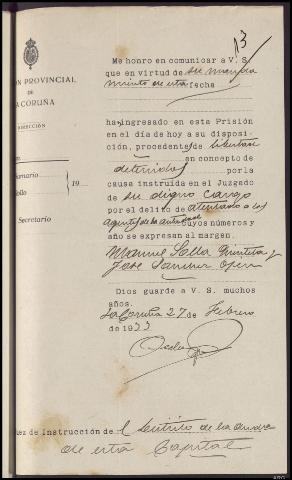 13
Me honro en comunicar a V. S.
que en virtud de su manda
miento de esta fecha
ON PROVINCIAL
DE
A CORUÑA
DIRECCIÓN
ha ingresado en esta Prisión
en el día de hoy a su disposi-
ción, procedente de libertad
en concepto de
detenidos por la
umario
19
causa instruida en el Juzgado
de su digno cargo
por el delito de atentado a los
Agentes de la autoridad cuyos números y
Secretario
año se expresan al margen.
Manuel Quintela y
José
Dios guarde a V. S. muchos
años.
La Coruña 27 de Febrero
de 1933
ez de Instrucción del Distrito de la Audia
de esta Capital